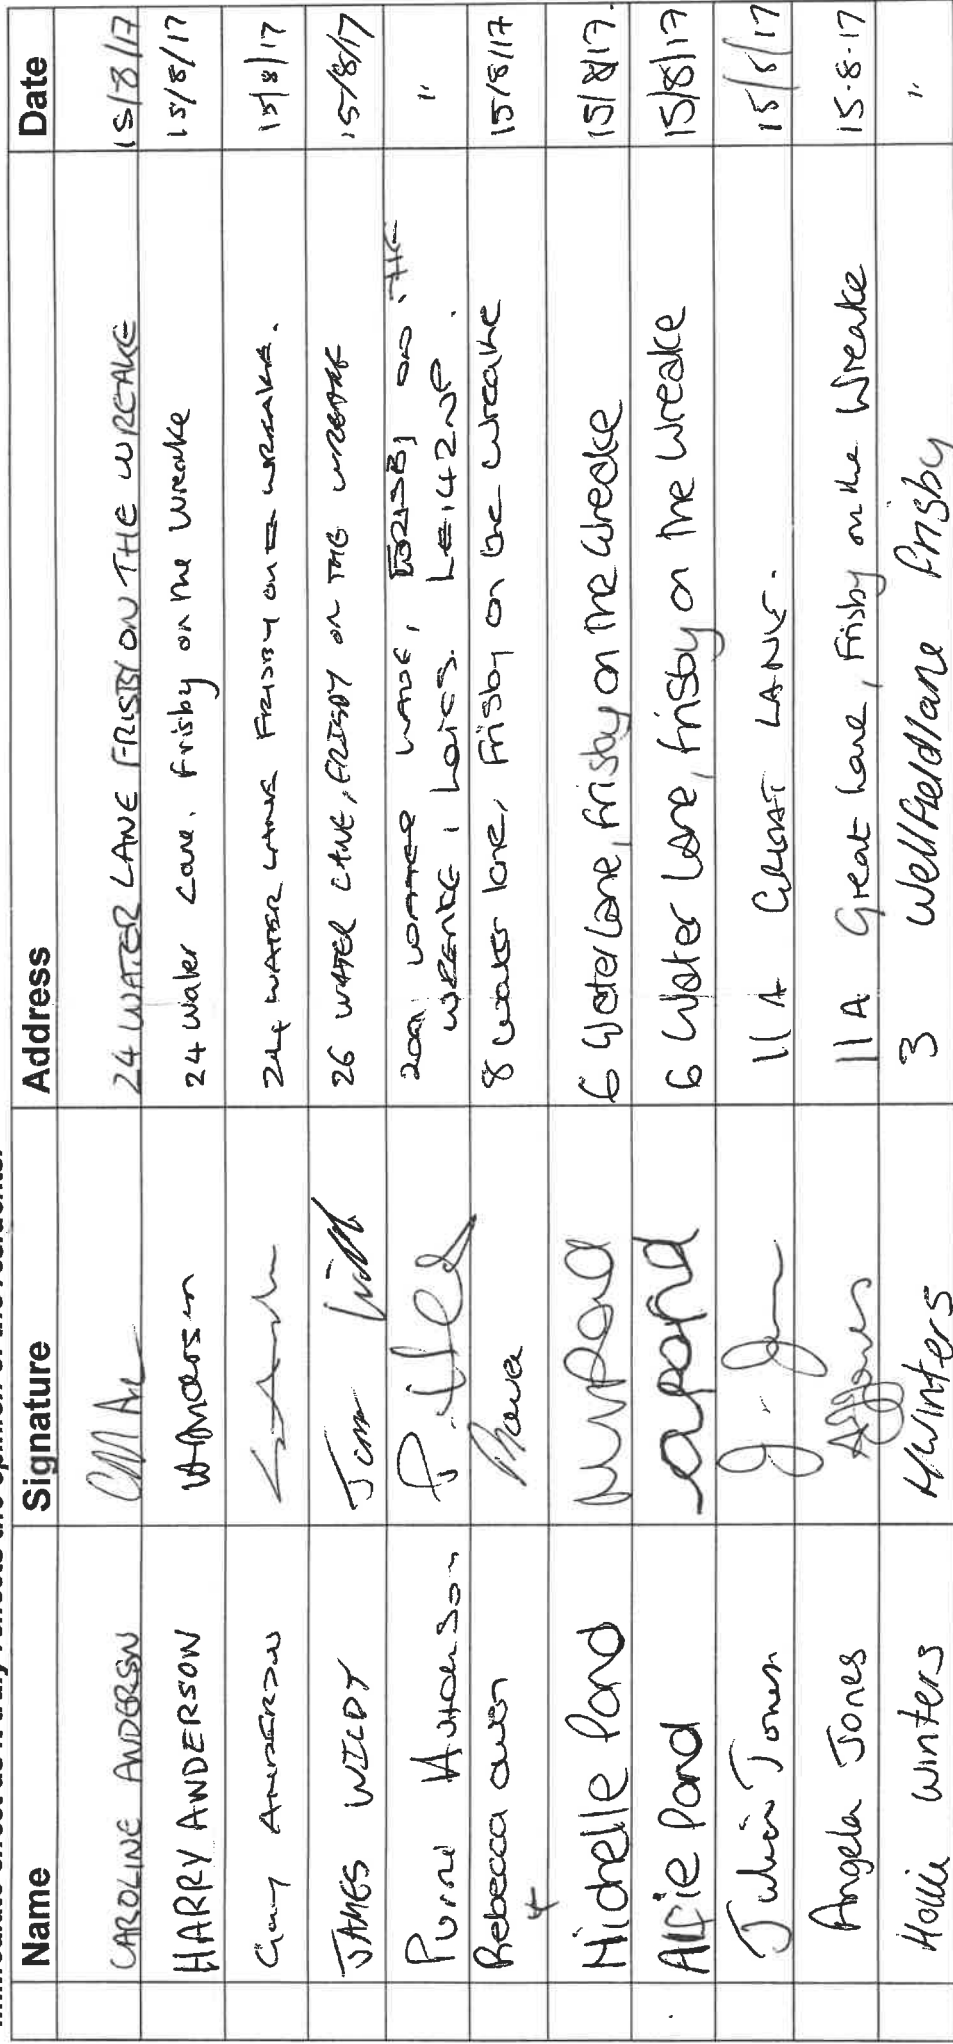 Name Signature Address Date
CAROLINE ANDERSON 24 WATER LANE FRISBY ON THE WREAKE 15/8/17
HARRY ANDERSON HAnderson 24 Water Lane, Frisby on the Wreake 15/8/17
Gary ANDERSON 24 WATER LANE FRISBY ON WREAKE. 15/8/17
JAMES WILDY 26 WATER LANE, FRISBY ON THE WREAKE 15/8/17
20a WATER LANE, FRISBY ON THE "
WREAKE, Leics. LE14 2NP.
Rebecca Owen 8 water lane, Frisby on the wreake 15/8/17
Michelle Pond MPond 6 Water Lane, frisby on the Wreake 15/8/17.
Alfie Pond apond 6 Water Lane, frisby on the Wreake 15/8/17
Julian Jones 11 A GREAT LANE. 15/8/17
Angela Jones AJones 11 A Great Lane, Frisby on the Wreake 15.8.17
Hollie Winters HWinters 3 Wellfield lane Frisby "